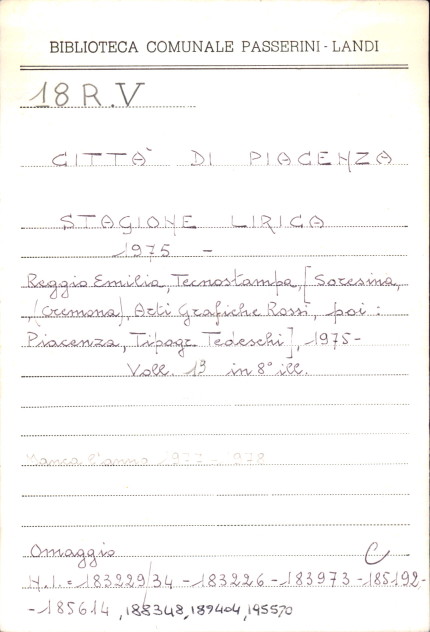 BIBLIOTECA COMUNALE PASSERINI - LANDI
18 R.V
CITTÀ DI PIACENZA
STAGIONE LIRICA
1975 -
Reggio Emilia, Tecnostampa, [Soresina,
(Cremona), Arti Grafiche Rossi, poi:
Piacenza, Tipogr. Tedeschi], 1975-
Voll. 13 in 8° ill.
Manca l'anno 1977 - 1978
Omaggio C
N.I. = 183229/34 - 183226 - 183973 - 185192 -
- 185614, 188348, 189404, 195570